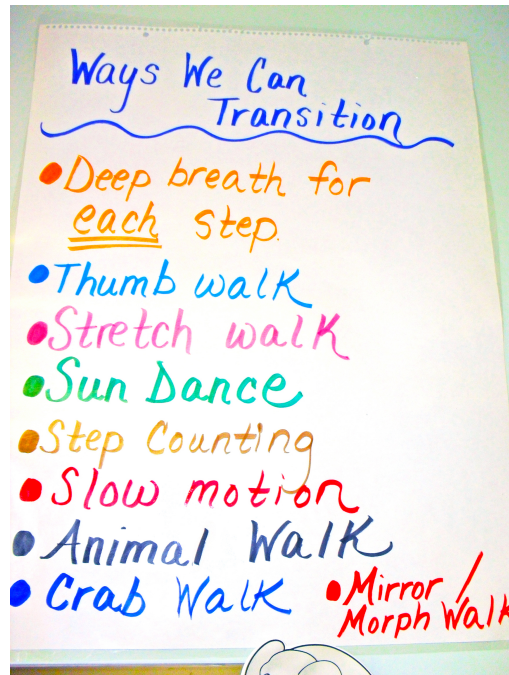 Ways We Can
Transition
• Deep breath for
each step.
• Thumb walk
• Stretch walk
• Sun Dance
• Step Counting
• Slow motion
• Animal Walk
• Crab Walk
• Mirror /
Morph Walk